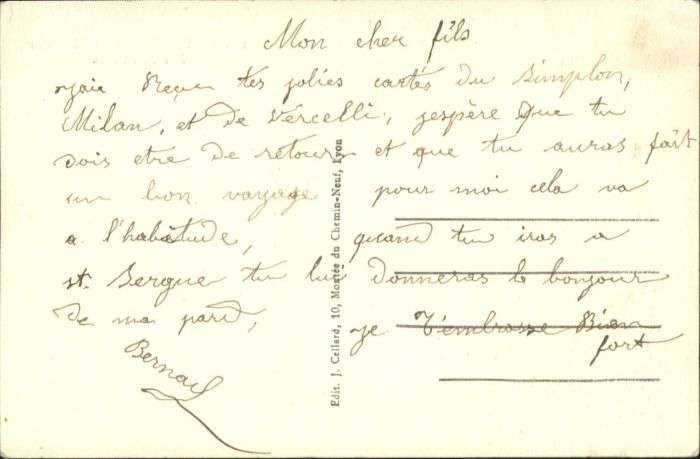 Mon cher fils
j'ai Reçu tes jolies cartes du Simplon,
Milan, et de Vercelli, j'espère Que tu
dois etre de retour et que tu auras fait
un bon voyage pour moi cela va
a l'habitude, quand tu iras a
st. Bergue tu lui donneras le bonjour
de ma part, je t'embrasse Bien
fort
Bernard
Edit. J. Cellard, 10, Montée du Chemin-Neuf, Lyon